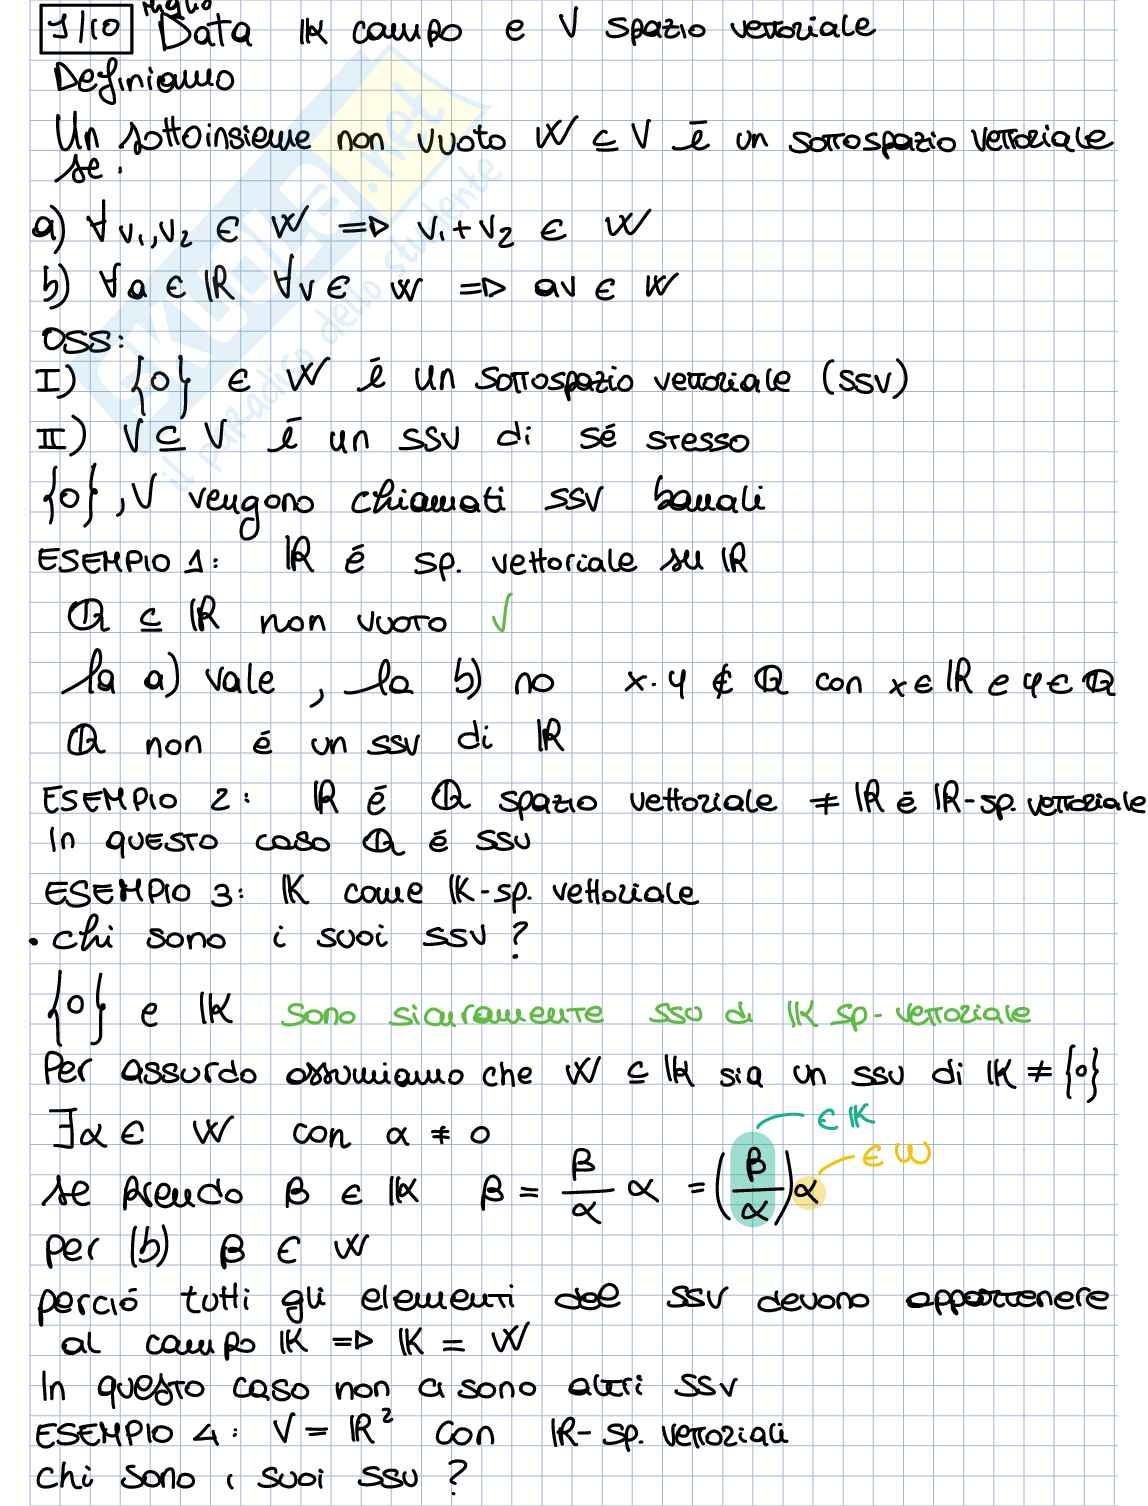 1/10 Data K campo e V spazio vettoriale
Definiamo
Un sottoinsieme non vuoto W ⊆ V ē un sottospazio vettoriale
se.
a) ∀ v₁,v₂ ∈ W => v₁+v₂ ∈ W
b) ∀ a ∈ ℝ ∀v ∈ W => av ∈ W
OSS:
I) {0} ∈ W é un sottospazio vettoriale (SSV)
II) V ⊆ V é un SSV di sé stesso
{0}, V vengono chiamati SSV banali
ESEMPIO 1: ℝ é sp. vettoriale su ℝ
ℚ ⊆ ℝ non vuoto √
la a) vale, la b) no x·y ∉ ℚ con x∈ℝ e y∈ℚ
ℚ non é un ssv di ℝ
ESEMPIO 2: ℝ é ℚ spazio vettoriale ≠ ℝ é ℝ-sp. vettoriale
In questo caso ℚ é ssv
ESEMPIO 3: K come K-sp. vettoriale
• chi sono i suoi ssv?
{0} e K sono sicuramente ssv di K sp-vettoriale
Per assurdo assumiamo che W ⊆ K sia un ssv di K ≠ {0}
∃α ∈ W con α ≠ 0
∈ K
∈ W
se prendo β ∈ K β = β/α α = (β/α)α
per (b) β ∈ W
perció tutti gli elementi del SSV devono appartenere
al campo K => K = W
In questo caso non ci sono altri SSV
ESEMPIO 4: V = ℝ² con ℝ- sp. vettoriali
chi sono i suoi ssv?
SKUOLA.net
il paradiso dello studente